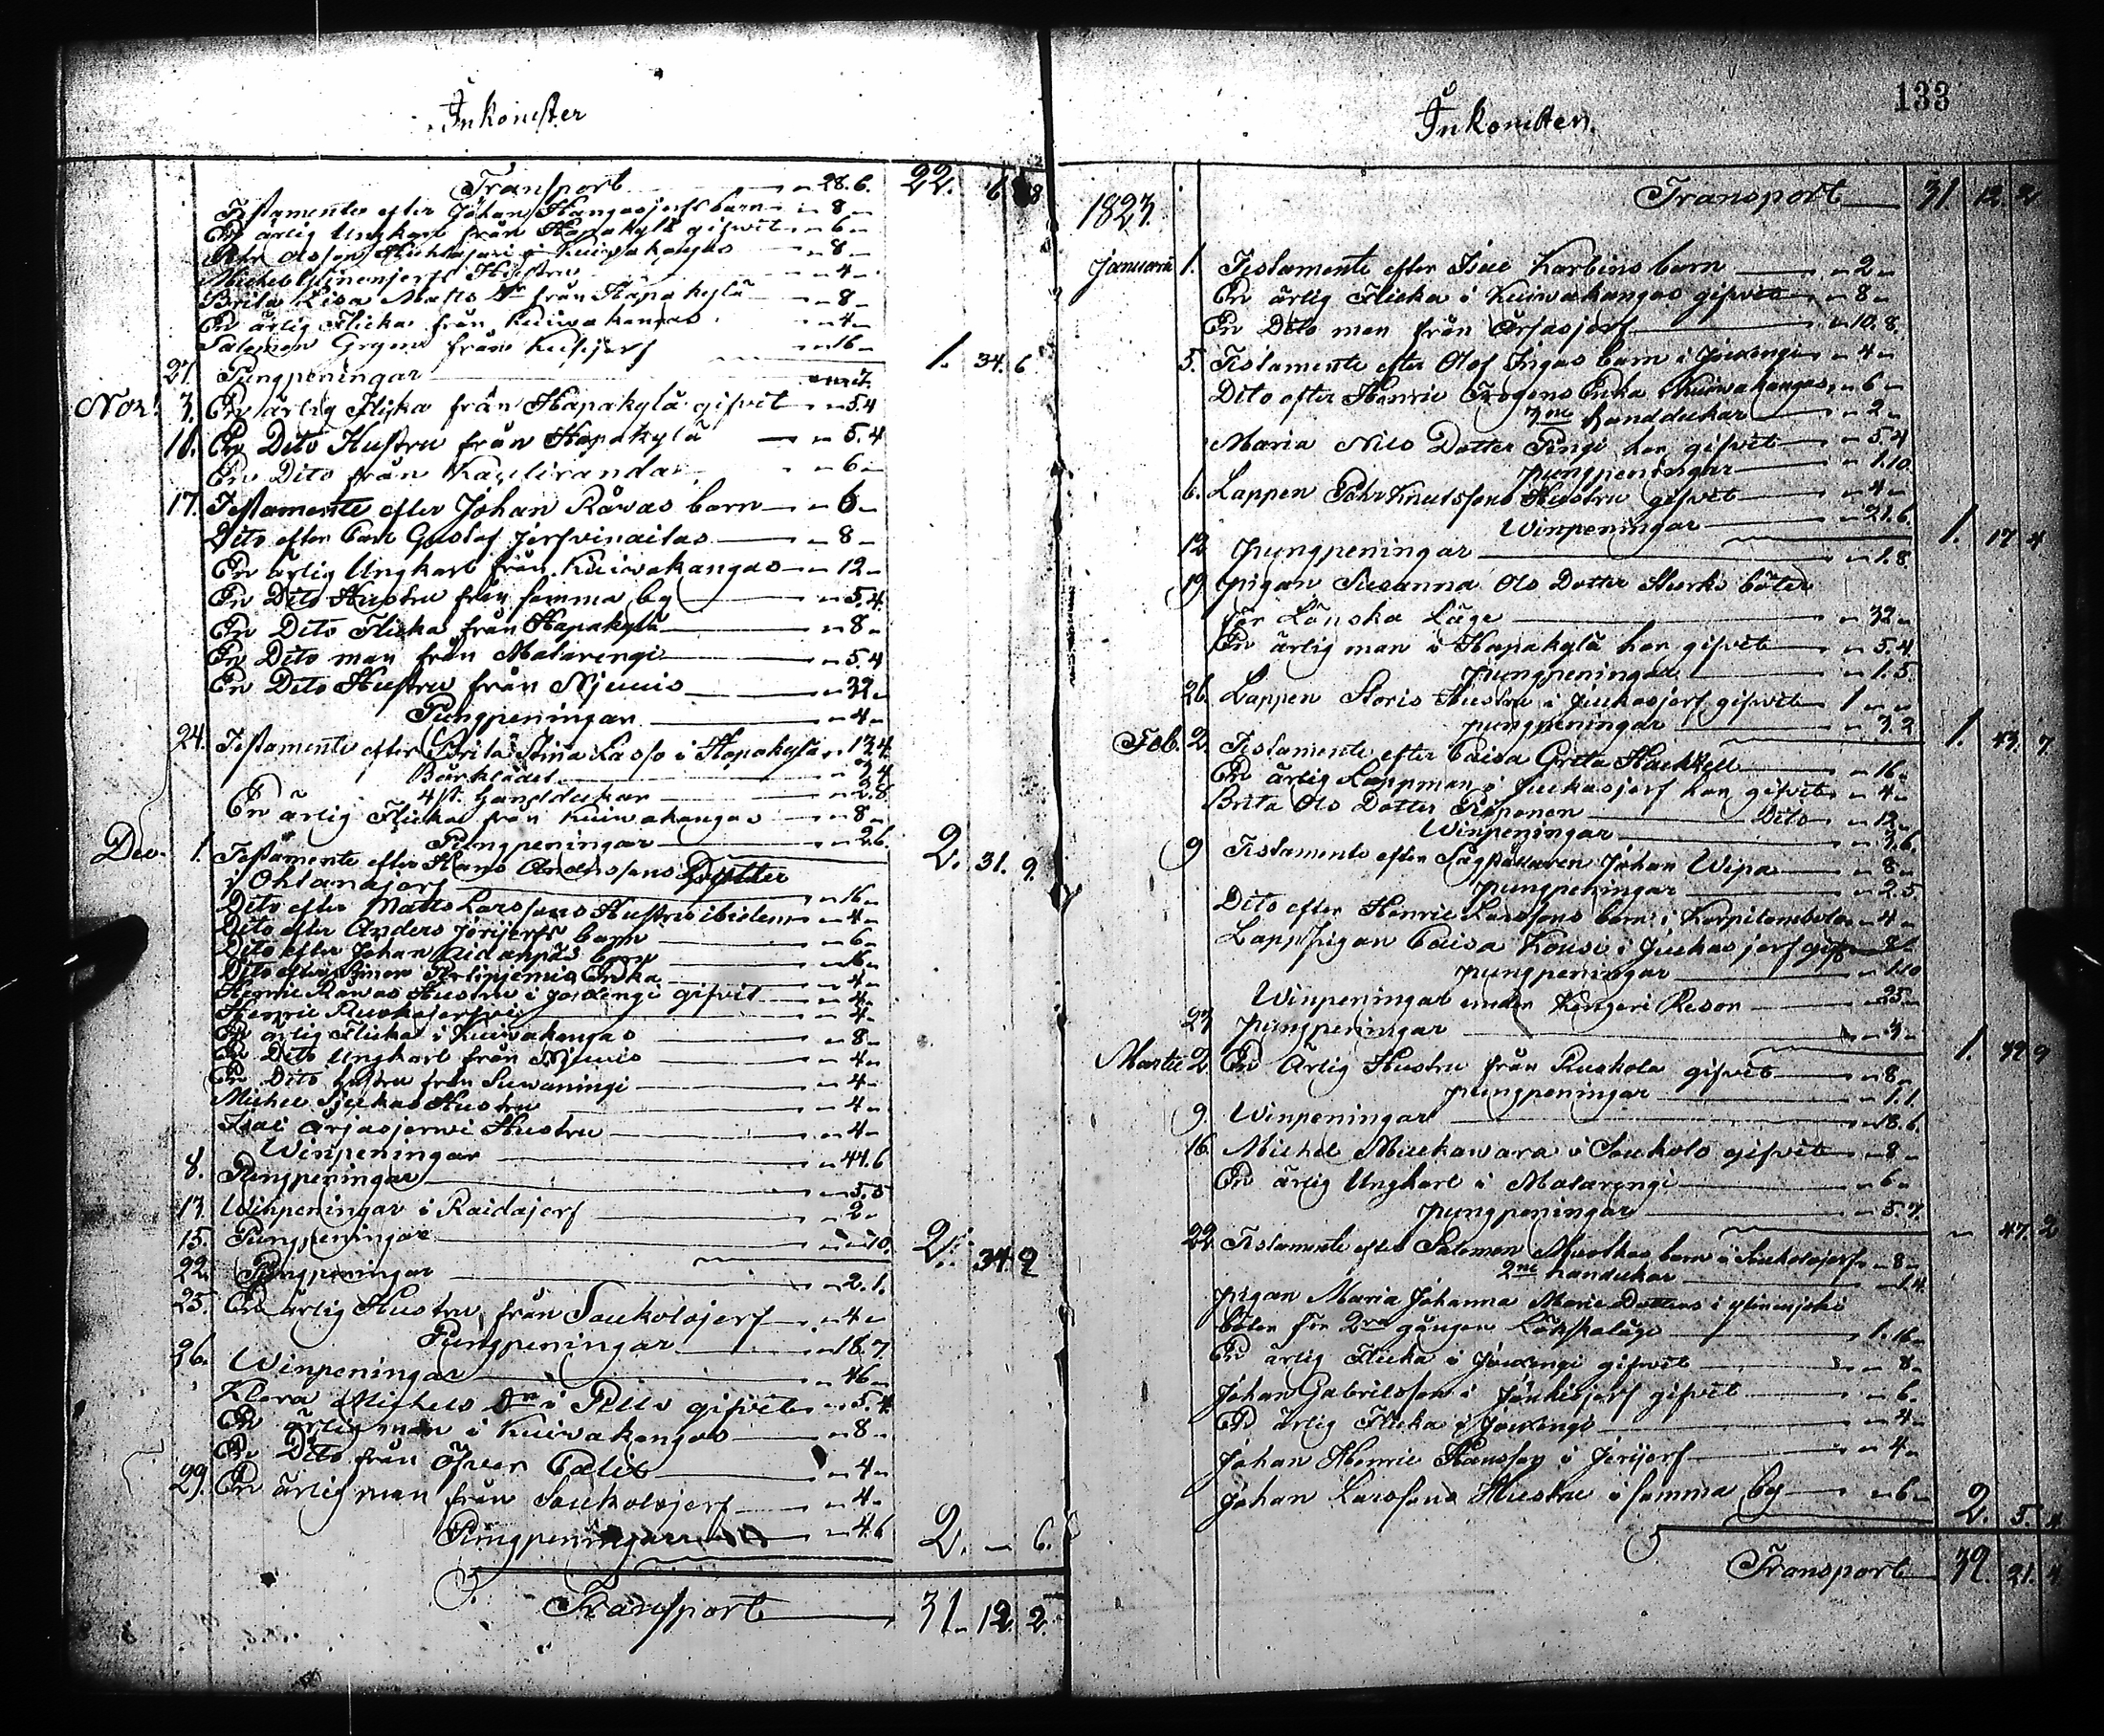 Inkomster
Transport - 28.6. 22. 6 8
Testamente efter Johan Hangasjerfs barn - 8 -
En ärlig Ungkarl från Hapakylä gifvit - 6 -
Pehr Olsson i Kuivakangas - 8 -
Michel Hustru - 4 -
Brita Lisa Matts Dr från Hapakylä - 8 -
En ärlig Flicka från Kuivakangas - 4 -
Salomon från - 16 -
27. Pungpeningar 1. 34. 6
Nov. 3. En ärlig Flicka från Hapakylä gifvit - 5.4
10. En Dito Hustru från Hapakylä - 5.4
En Dito från Kauliranda - 6 -
17. Testamente efter Johan Råvas barn - 6 -
Dito efter Carl Gustaf - 8 -
En ärlig Ungkarl från Kuivakangas - 12 -
En Dito Hustru från samma by - 5.4
En Dito Flicka från Hapakylä - 8 -
En Dito man från Matarengi - 5.4
En Dito Hustru från Njemis - 32 -
Pungpeningar - 4 -
24. Testamente efter Brita Stina Lasso i Hapakylä - 13.4
Bårklädet
4 st. handdukar - 2.8
En ärlig Flicka från Kuivakangas - 8 -
Pungpeningar - 2.6 2. 31. 9.
Dec. 1. Testamente efter Hans Anderssons Dotter
i Ohtanajerf - 16 -
Dito efter Matts Larssons Hustru ibidem - 4 -
Dito efter Anders Jerijerfs barn - 6 -
Dito efter Johan barn - 6 -
Dito efter Simon Enka - 4 -
Henric Råwas Hustru i Jouxengi gifvit - 4 -
Henric - 4 -
En ärlig Flicka i Kuivakangas - 8 -
En Dito Ungkarl från Njemis - 4 -
En Dito hustru från Suwaningi - 4 -
Michel Hustru - 4 -
Isac Orjasjerwi Hustru - 4 -
Winpeningar - 44.6
8. Pungpeningar - 5.5
13. Winpeningar i Raidajerf - 2 -
15. Pungpeningar 2. 34 2
22. Pungpeningar - 2.1.
25. En ärlig Hustru från Soukolojerf - 4 -
Pungpeningar - 18.7
26. Winpeningar - 46 -
Klara Michels Dr i Pello gifvit - 5.4
En ärlig man i Kuivakangas - 8 -
En Dito från Öfver - 4 -
29. En ärlig man från Soukolojerf - 4 -
Pungpeningar - 4.6 2. - 6.
Transport 31. 12. 2.
133
Inkomster
1823. Transport 31. 12. 2
Januarii 1. Testamente efter Isac Korbins barn - 2 -
En ärlig Flicka i Kuivakangas gifvit - 8 -
En Dito man från Orjasjerf - 10.8.
5. Testamente efter Olof Ingas barn i Jouxengi - 4 -
Dito efter Henric Enka i Kuivakangas - 6 -
3ne handdukar - 2 -
Maria Nils Dotter har gifvit - 5.4
pungpeningar - 1.10
6. Lappen Pehr Knutssons Hustru gifvit - 4 -
Winpeningar - 21.6. 1. 17 4
12 pungpeningar - 1.8
19 pigan Susanna Ols Dotter böter
för Lönska Läge - 32 -
En ärlig man i Hapakylä har gifvit - 5.4
pungpeningar - 1.5.
26. Lappen Storis Hustru i Juckasjerf gifvit 1 - -
pungpeningar - 3.2 1. 43. 7.
Feb. 2. Testamente efter Caisa Greta Hackzell - 16 -
En ärlig Lappman i Juckasjerf har gifvit - 4 -
Brita Ols Dotter Dito - 12 -
Winpeningar - 3.6.
9 Testamente efter Johan Wipa - 8 -
pungpeningar - 2.5
Dito efter Henric Larssons barn i Korpilombolo - 4 -
Lapp Pigan Caisa i Juckasjerf gifv. - 8
pungpeningar - 1.10
Winpeningar under Kengeri Reson - 25 -
23 pungpeningar 1. 9
Martii 2 En Ärlig Hustru från Ruskola gifvit - 8 -
pungpeningar - 1.1.
9. Winpeningar - 18.6.
16. Michel Mukawara i Soukolo gifvit - 8 -
En ärlig Ungkarl i Matarengi - 6 -
pungpeningar - 5.7. - 47. 2
22 Testamente efter Salomon barn i Soukolojerf - 8 -
2ne handukar - 1.4
pigan Maria Johanna Dotters i
böter för 2ra gången - 1. 16 -
En ärlig Flicka i Jouxengi gifvit - 8 -
Johan Gabrielsson i gifvit - 6 -
En ärlig Flicka i Jouxengi - 4 -
Johan Henric Hansson i Jerijerf - 4 -
Johan Larssons Hustru i samma by - 6 - 2. 5. 4
Transport 39. 21. 4